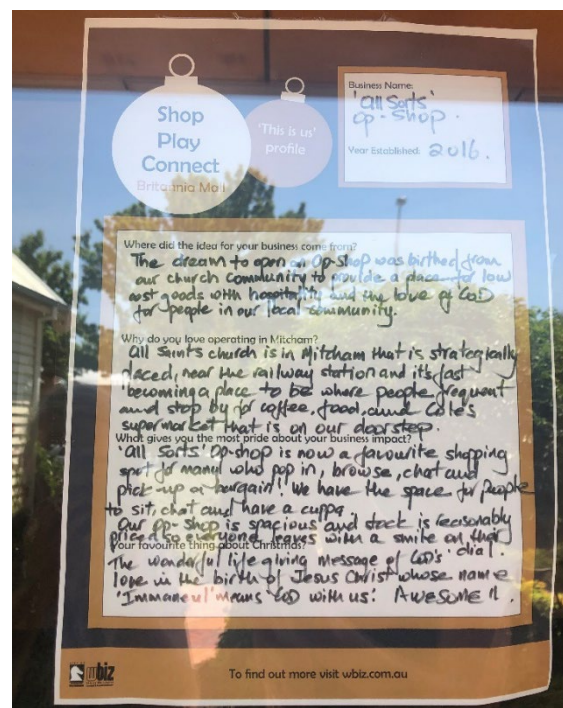 Shop
Play
Connect
Britannia Mall
'This is us'
profile
Business Name:
'All Sorts'
op-shop.
Year Established: 2016.
Where did the idea for your business come from?
The dream to open an Op-Shop was birthed from
our church community to provide a place for low
cost goods with hospitality and the love of GOD
for people in our local community.
Why do you love operating in Mitcham?
All Saints church is in Mitcham that is strategically
placed, near the railway station and it's fast
becoming a place to be where people frequent
and stop by for coffee, food, and Coles
supermarket that is on our doorstep.
What gives you the most pride about your business impact?
'All Sorts' op-shop is now a favourite shopping
spot for many who pop in, browse, chat and
pick-up a bargain! We have the space for people
to sit, chat and have a cuppa.
Our op-shop is spacious and stock is reasonably
priced so everyone leaves with a smile on their
dial.
Your favourite thing about Christmas?
The wonderful life giving message of GOD's
love in the birth of Jesus Christ whose name
'Immaneul' means GOD with us! AWESOME!!.
wbiz
To find out more visit wbiz.com.au